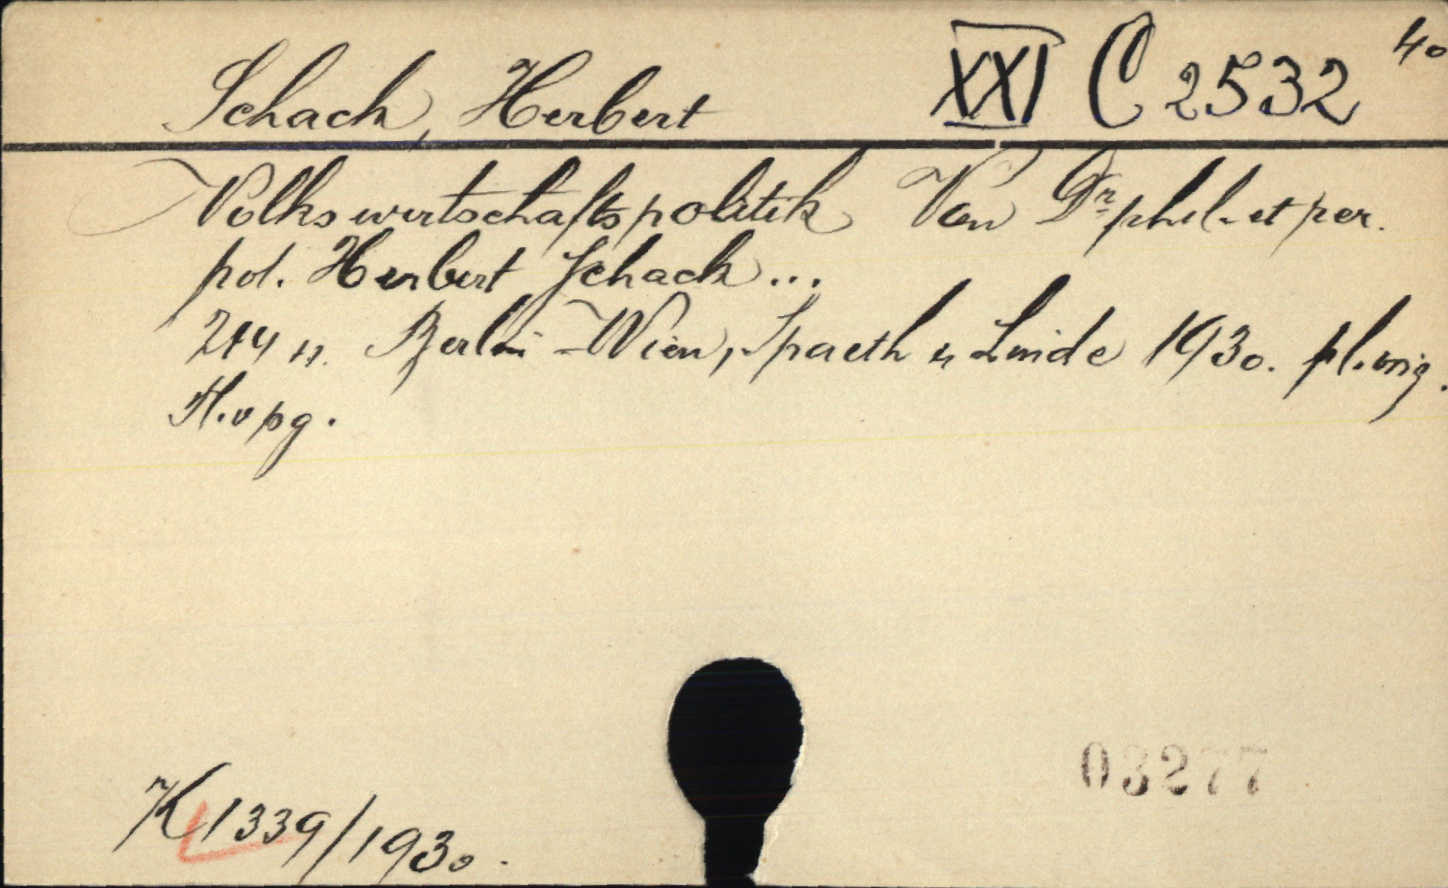 Schack, Herbert XXI C 2532 40
Volkswirtschaftspolitik Von Dr phil. et rer.
pol. Herbert Schack...
214 Berlin-Wien, Spaeth & Linde 1930. pl. orig.
K 1339/1930.
03277